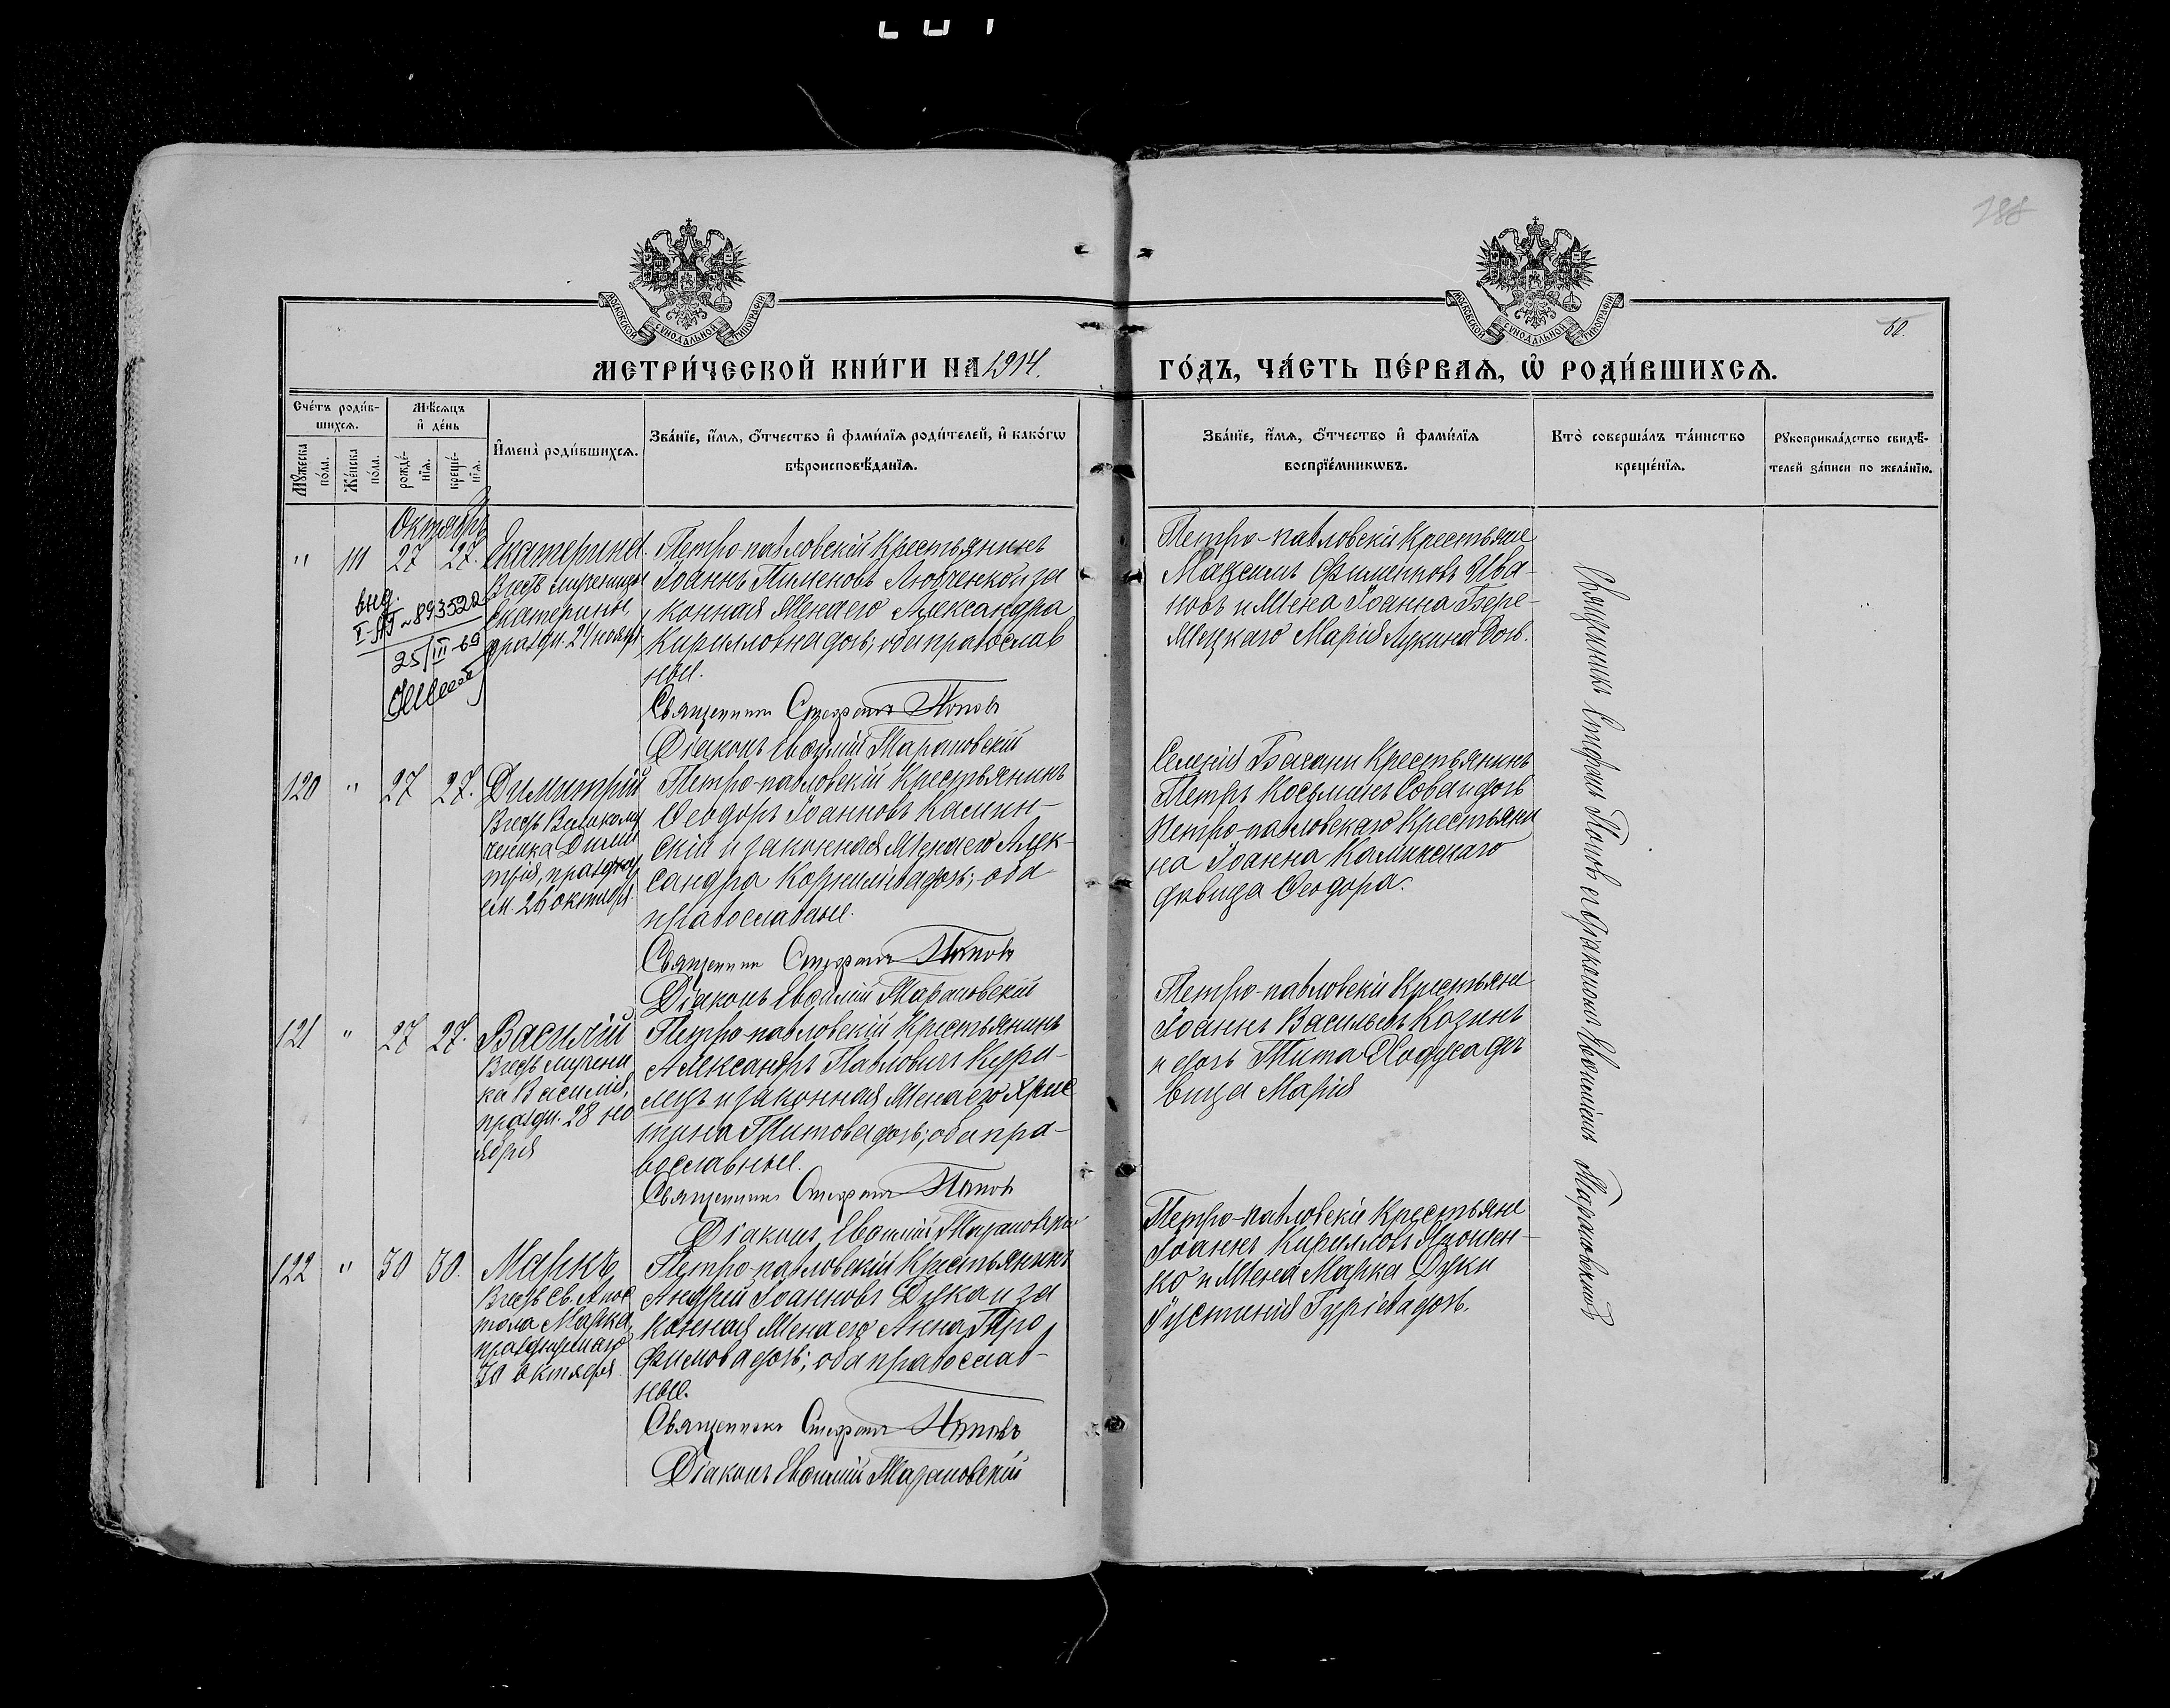 188
МОСКОВСКОЙ СѴНОДАЛЬНОЙ ТИПОГРАФІИ
МОСКОВСКОЙ СѴНОДАЛЬНОЙ ТИПОГРАФІИ
60.
МЕТРИ́ЧЕСКОЙ КНИ́ГИ НА 1914.
ГО́ДЪ, ЧА́СТЬ ПЕ́РВАѦ, Ѡ҆ РОДИ́ВШИХСѦ.
Сче́тъ роди́в-
шихсѧ.
Мꙋ́жеска по́ла.
Же́нска по́ла.
Мѣ́сѧцъ
и҆ де́нь
рожде́-
нїѧ.
креще́-
нїѧ.
И҆мена̀ роди́вшихсѧ.
Зва́нїе, и҆́мѧ, ѻ҆́тчество и҆ фами́лїѧ роди́телей, и҆ како́гѡ
вѣроисповѣ́данїѧ.
Зва́нїе, и҆́мѧ, ѻ҆́тчество и҆ фами́лїѧ
воспрїе́мникѡвъ.
Кто̀ соверша́лъ та́инство
креще́нїѧ.
Рꙋкоприкла́дство свидѣ́-
телей за́писи по жела́нїю.
Октябрь
" 111 27 27.
Екатерина.
Въ честь мученицы
Екатерины,
праздн. 24 ноябр.
выд.
I-АГ № 893522
25/III-69
Петро-павловскій крестьянинъ
Іоаннъ Пименовъ Любченко и за
конная жена его Александра
Кириллова дочь; оба православ
ные.
Священникъ Стефанъ Поповъ
Діаконъ Евѳимій Тарановскій
Петро-павловскіе крестьяне
Максимъ Филипповъ Ива-
новъ и жена Іоанна Бере-
жецкаго Марія Лукина дочь.
120 " 27 27.
Димитрій
Въ честь Великому
ченика Дими
трія, празднуе
ем. 26 октября.
Петро-павловскій крестьянинъ
Ѳеодоръ Іоанновъ Калин-
скій и законная жена его Алек-
сандра Корнилова дочь; оба
православные.
Священникъ Стефанъ Поповъ
Діаконъ Евѳимій Тарановскій
Селенія Басани крестьянинъ
Петръ Косьминъ Сова и дочь
Петро-павловскаго крестьяни
на Іоанна Калинскаго
дѣвица Ѳеодора.
121 " 27 27.
Василій
Въ честь мучени
ка Василія,
праздн. 28 но
ября
Петро-павловскій крестьянинъ
Александръ Павловичъ Кура-
лецъ и законная жена его Хрис
тина Титова дочь; оба пра-
вославные.
Священникъ Стефанъ Поповъ
Діаконъ Евѳимій Тарановскій
Петро-павловскіе крестьяне
Іоаннъ Васильевъ Козинъ
и дочь Тита Ходуса дѣ
вица Марія
122 " 30 30.
Маркъ
Въ честь Св. Апос
тола Марка,
празднуемаго
30 октября.
Петро-павловскій крестьянинъ
Андрей Іоанновъ Дука и за
конная жена его Анна Тро
фимова дочь; оба православ-
ные.
Священникъ Стефанъ Поповъ
Діаконъ Евѳимій Тарановскій
Петро-павловскіе крестьяне
Іоаннъ Кирилловъ
ко и жена Марка Дуки
Іустинія Гуріева дочь.
Священникъ Стефанъ Поповъ съ діакономъ Евѳиміемъ Тарановскимъ